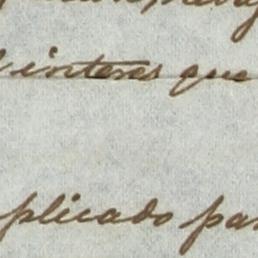 interes que
plicado pa